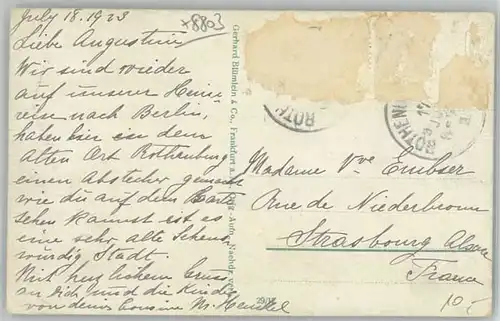 July 18. 1923
x8803
Liebe Augustin
Wir sind wieder
auf unserer Heim
reise nach Berlin,
haben hier in dem
alten Ort Rothenburg
einen Abstecher gemacht
wie du auf dem Kart
sehen kannst ist es
eine sehr alte Sehens
würdig Stadt.
Mit herzlichem Gruss
an Dich und die Kinder
von deine Cousine M. Henkel
Gerhard Blümlein & Co., Frankfurt a. M.
2908
ROTHEN
Madame Vve Embser
Rue de Niederbronn
Strasbourg Alsace
France
10.-